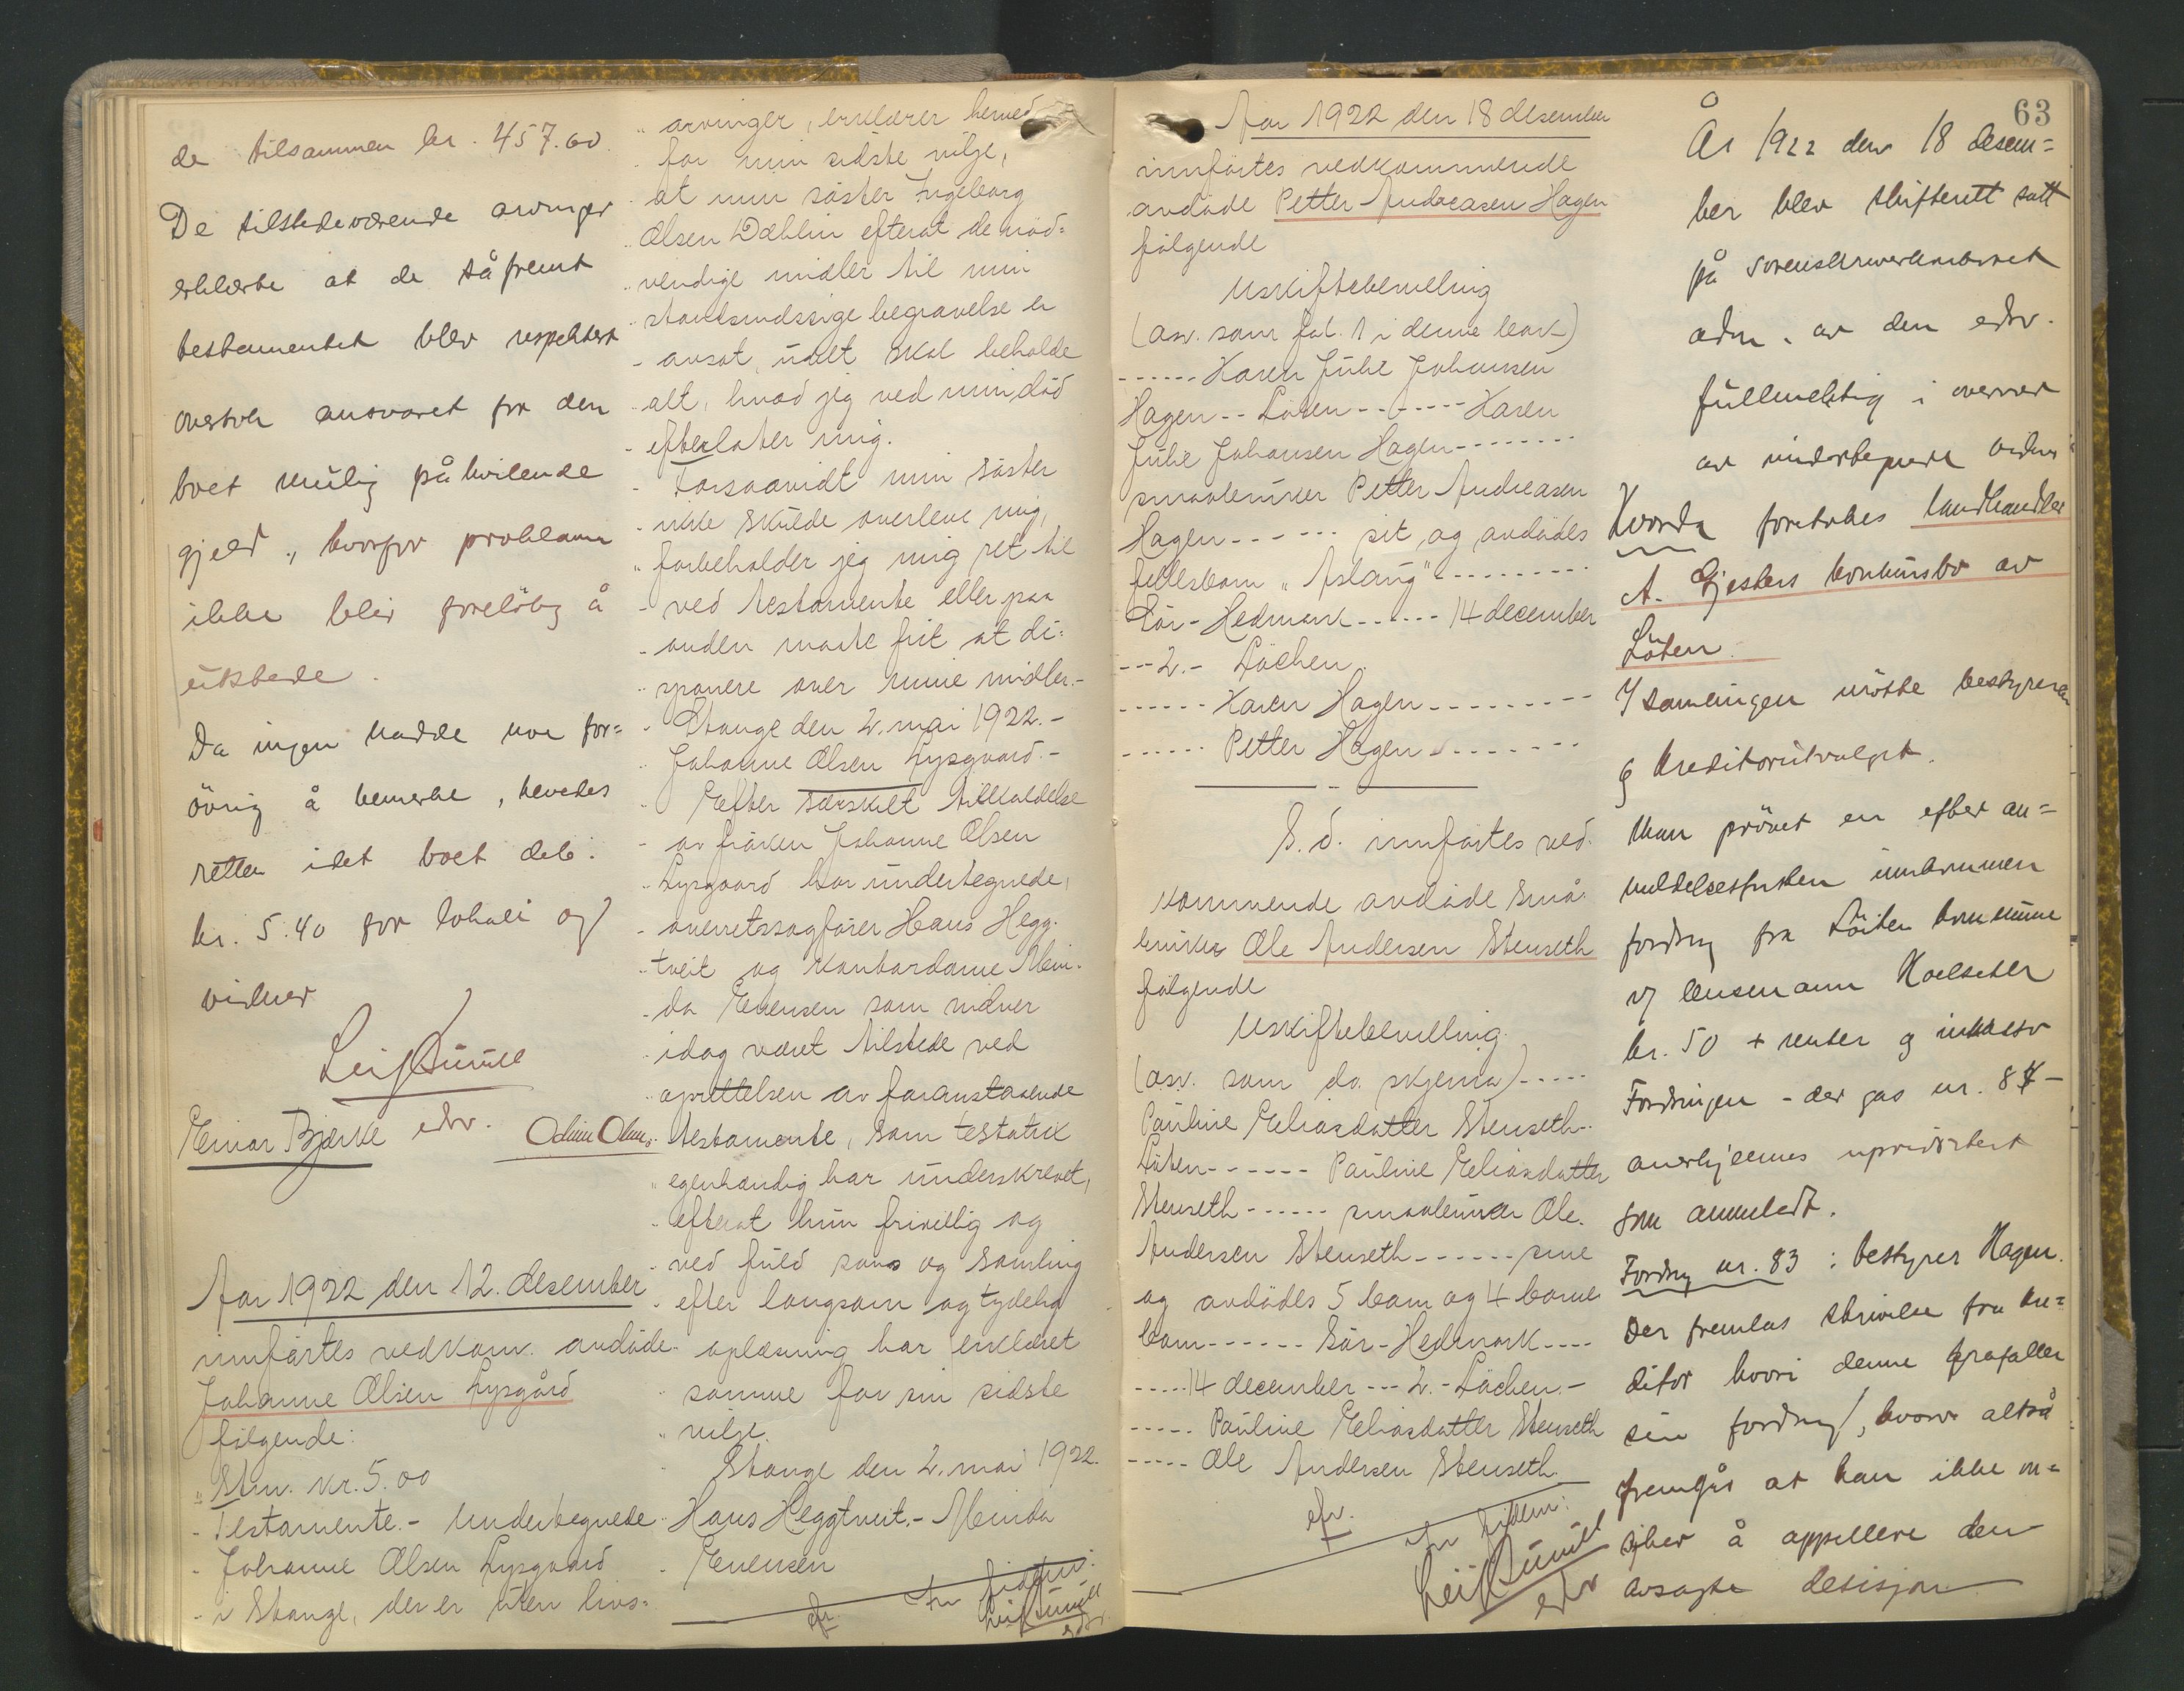 de tilsammen kr. 457.60
De tilstedeværende arvinger
erklærte at de såfremt
testamentet blev respektert
overtok ansvaret for den
boet mulig påhvilende
gjeld, hvorfor proklama
ikke blir foreløbig å
utstede.
Da ingen hadde noe for=
øvrig å bemerke, hevedes
retten idet boet deb.
kr. 5.40 for lokale og
vidner
Leif Lunde
edv.
Einar Bjerke
Odin Olsen
Aar 1922 den 12. desember
innførtes vedkom. avdøde
Johanne Olsen Lysgård
følgende:
"Stm. kr. 5.00
- Testamente. - Undertegnede
- Johanne Olsen Lysgaard
- i Stange, der er uten livs=
" arvinger, erklærer herved
- for min sidste vilje,
- at min søster Ingeborg
" Olsen Dæhlin efterat de nød=
" vendige midler til min
" standsmæssige begravelse er
- avsat, udelt skal beholde
- alt, hvad jeg ved min død
- efterlater mig.
- Forsaavidt min søster
- ikke skulde overleve mig,
" forbeholder jeg mig ret til
- ved testamente eller paa
- anden maate frit at di=
" sponere over mine midler. -
- Stange den 2. mai 1922. -
" Johanne Olsen Lysgaard. -
" Efter særskilt tilkaldelse
- av frøken Johanne Olsen
- Lysgaard har undertegnede,
- overretssagfører Hans Hegg-
" tveit og kontordame Min-
- da Evensen som vidner
- idag været tilstede ved
" oprettelsen av foranstaaende
- testamente, som testatrix
" egenhændig har underskrevet,
- efterat hun frivillig og
- ved fuld sans og samling
- efter langsom og tydelig
- oplæsning har erklæret
" samme for sin sidste
" vilje.
- Stange den 2. mai 1922.
" Hans Heggtveit. - Minda
- Evensen
efr. In fidem:
Leif Lunde
edv.
63
Aar 1922 den 18 desember
innførtes vedkommende
avdøde Petter Andreasen Hagen
følgende
Uskiftebevilling
(avs. som fol. 1 i denne bok)
------ Karen Julie Johansen
Hagen -- Løten ------- Karen
Julie Johansen Hagen --------
smaabruker Petter Andreasen
Hagen ------ sit og avdødes
fellesbarn "Aslaug" ---------
Sør-Hedmark ------ 14 december
--- 2. - Løchen.
------ Karen Hagen ---------
------ Petter Hagen --------
S. d. innførtes ved-
kommende avdøde små-
bruker Ole Andersen Stenseth
følgende
Uskiftebevilling.
(avs. som do. skjema) -----
Pauline Eliasdatter Stenseth -
Løten ------ Pauline Eliasdatter
Stenseth ------ smaabruker Ole
Andersen Stenseth ------ sine
og avdødes 5 barn og 4 barne-
barn ------ Sør-Hedmark ----
----- 14 december --- 2. - Løchen. -
----- Pauline Eliasdatter Stenseth
----- Ole Andersen Stenseth.
efr. In fidem:
Leif Lunde
edv
År 1922 den 18 desem=
ber blev skifterett satt
på sorenskriverkontoret
adm. av den edsv.
fullmektig i overvær
av undertegnede vidner
Hvorda foretokes landhandler
A. Gjesters konkursbo av
Løten.
I samlingen møtte bestyreren
og kreditorutvalget.
Man prøvet en efter an=
meldelsesfristen innkommen
fordring fra Løiten kommune
v/ lensmann Hoelseter
kr. 50 + renter og inkasso
Fordringen - der gas nr. 84 -
anerkjennes uprioritert
som anmeldt.
Fordring nr. 83: bestyrer Hagen.
Der fremlas skrivelse fra kre=
ditor hvori denne frafaller
sin fordring, hvorav altså
fremgår at han ikke øn=
sker å appellere den
avsagte desisjon